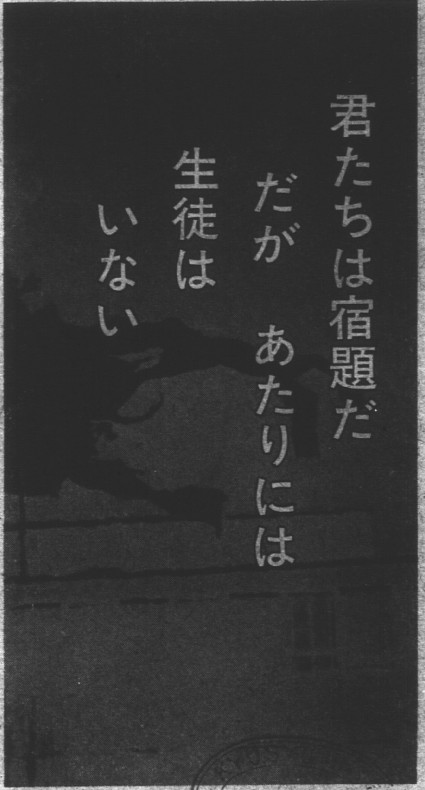 君たちは宿題だ
だが　あたりには
生徒は
いない